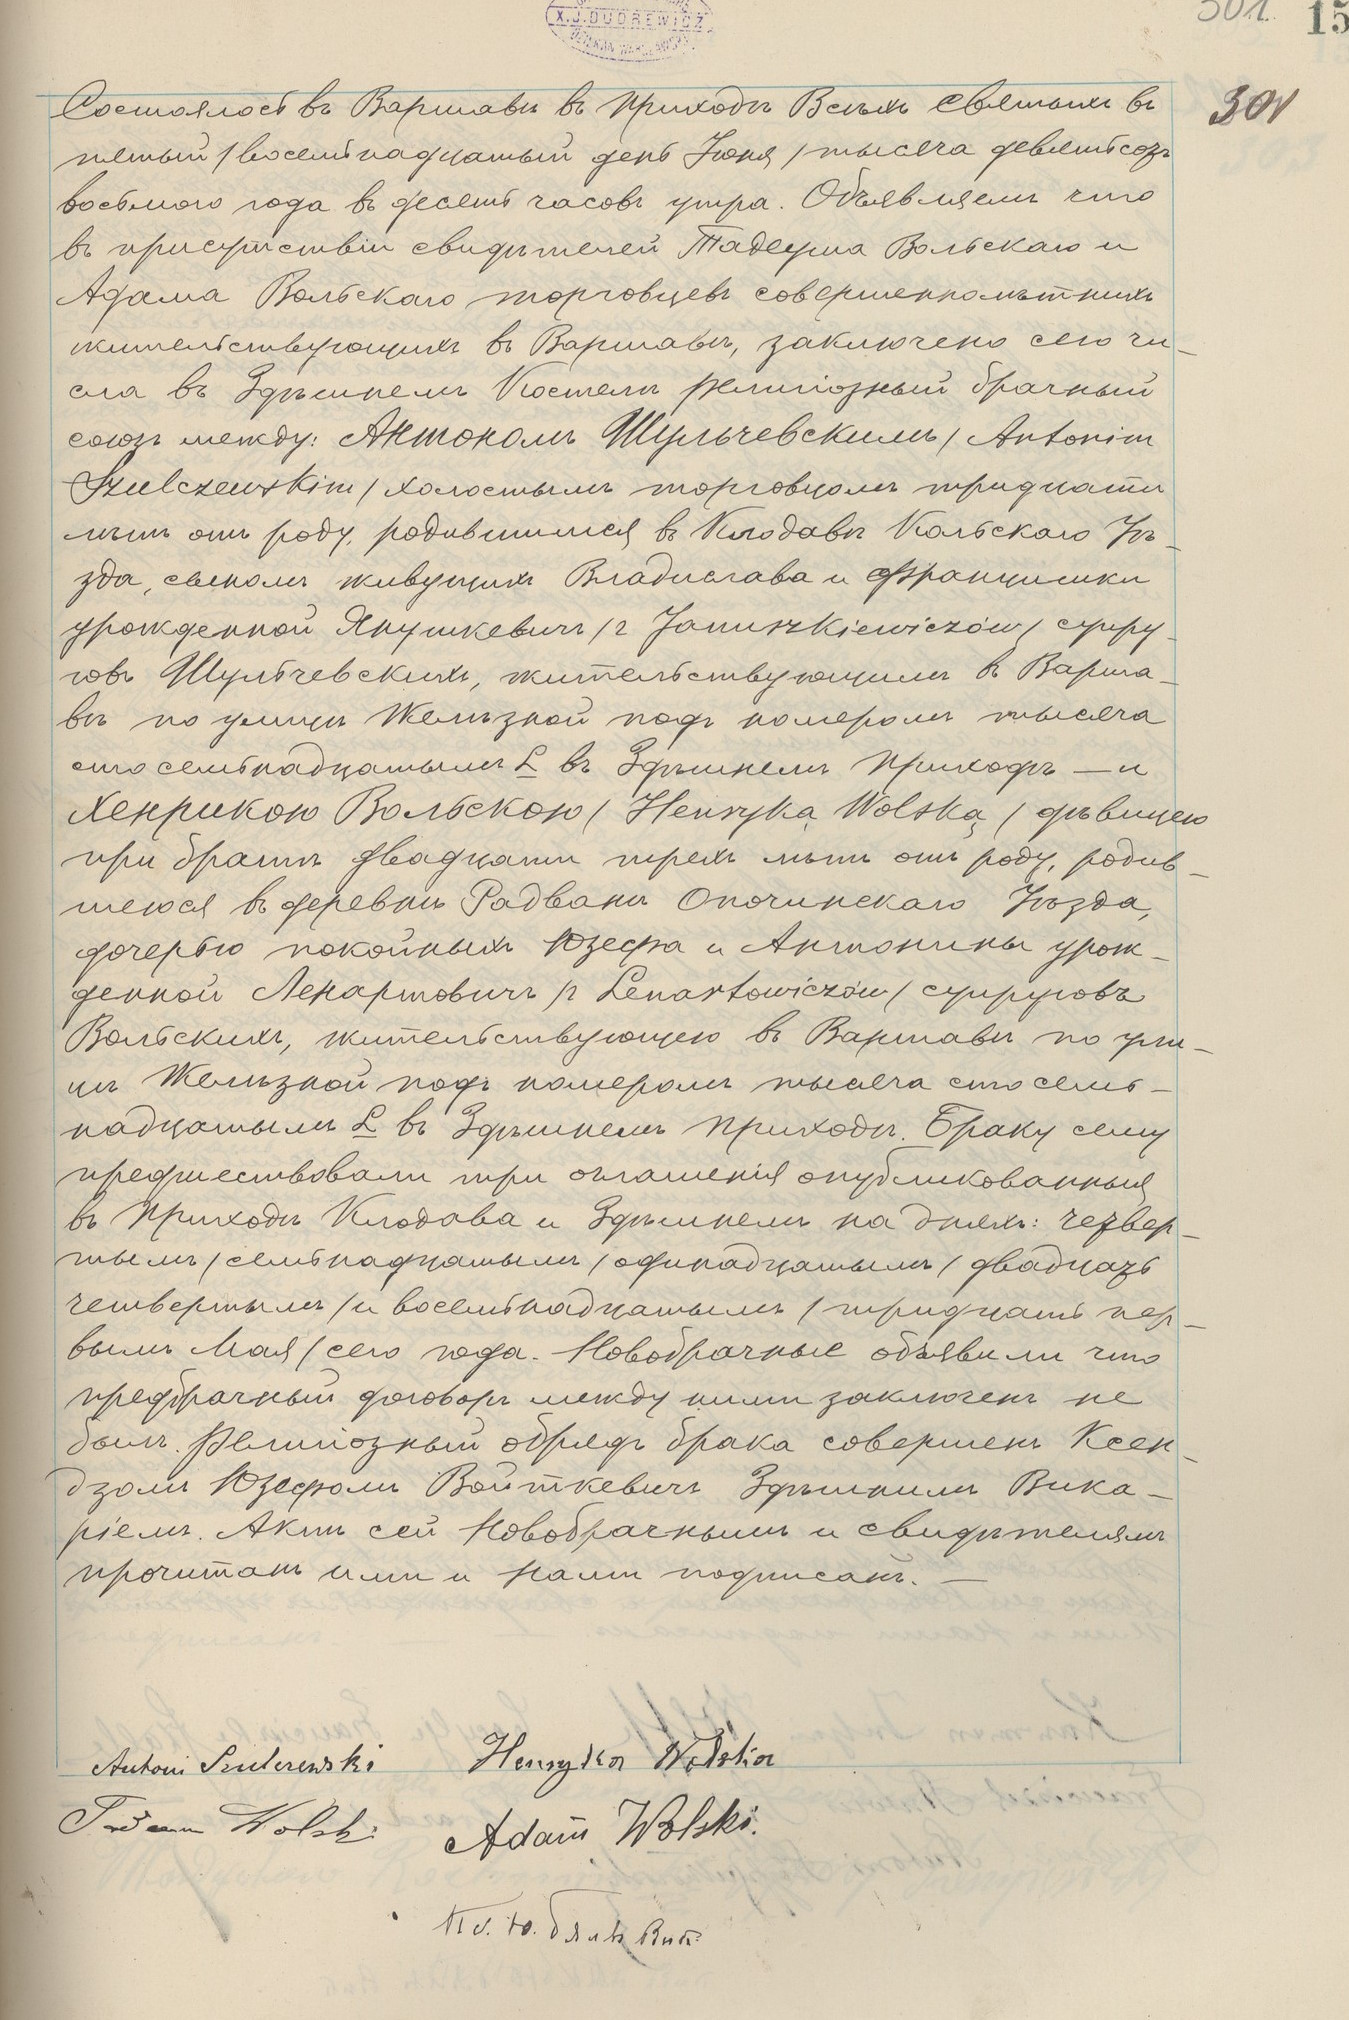 X.J.DUDREWICZ
301. 15
301
Состоялось въ Варшавѣ въ приходѣ Всѣхъ Святыхъ въ
пятый /восемнадцатый день Іюня/ тысяча девятьсотъ
восьмого года въ десять часовъ утра. Объявляемъ что
въ присутствіи свидѣтелей Тадеуша Вольскаго и
Адама Вольскаго торговцевъ совершеннолѣтнихъ
жительствующихъ въ Варшавѣ, заключено сего чи-
сла въ Здѣшнемъ Костелѣ религіозный брачный
союзъ между: Антономъ Шульчевскимъ / Antonim
Szulczewskim / холостымъ торговцомъ тридцати
лѣтъ отъ роду, родившимся въ Клодавѣ Кольскаго Уѣ-
зда, сыномъ живущихъ Владислава и Францишки
урожденной Янушкевичъ /z Januszkiewiczów/ супру-
говъ Шульчевскихъ, жительствующимъ въ Варша-
вѣ по улицѣ Желѣзной подъ номеромъ тысяча
сто семнадцатымъ L въ Здѣшнемъ приходѣ — и
Хенрикою Вольскою / Henryką Wolską / дѣвицею
при братѣ двадцати трехъ лѣтъ отъ роду, родив-
шеюся въ деревнѣ Радванъ Опочинскаго Уѣзда,
дочерью покойныхъ Юзефа и Антонины урож-
денной Ленартовичъ /z Lenartowiczów/ супруговъ
Вольскихъ, жительствующею въ Варшавѣ по ули-
цѣ Желѣзной подъ номеромъ тысяча сто сем-
надцатымъ L въ Здѣшнемъ приходѣ. Браку сему
предшествовали три оглашенія опубликованныя
въ приходѣ Клодава и Здѣшнемъ на дняхъ: четвер-
тымъ /семнадцатымъ/ одинадцатымъ / двадцать
четвертымъ / и восемнадцатымъ / тридцать пер-
вымъ Мая / сего года. Новобрачные объявили что
предбрачный договоръ между ними заключенъ не
былъ. Религіозный обрядъ брака совершенъ Ксен-
дзомъ Юзефомъ Войткевичъ Здѣшнимъ Вика-
ріемъ. Актъ сей Новобрачнымъ и свидѣтелямъ
прочитанъ ими и Нами подписанъ. —
Antoni Szulczewski Henryka Wolska
Wolski Adam Wolski.